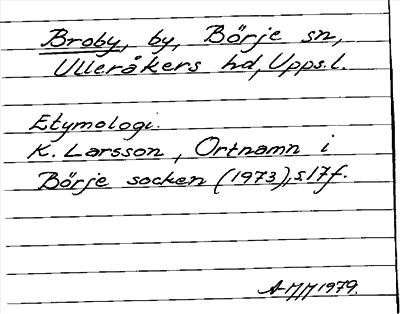 Broby, by, Börje sn,
Ulleråkers hd, Upps.l.
Etymologi.
K. Larsson, Ortnamn i
Börje socken (1973), s17f.
1979.